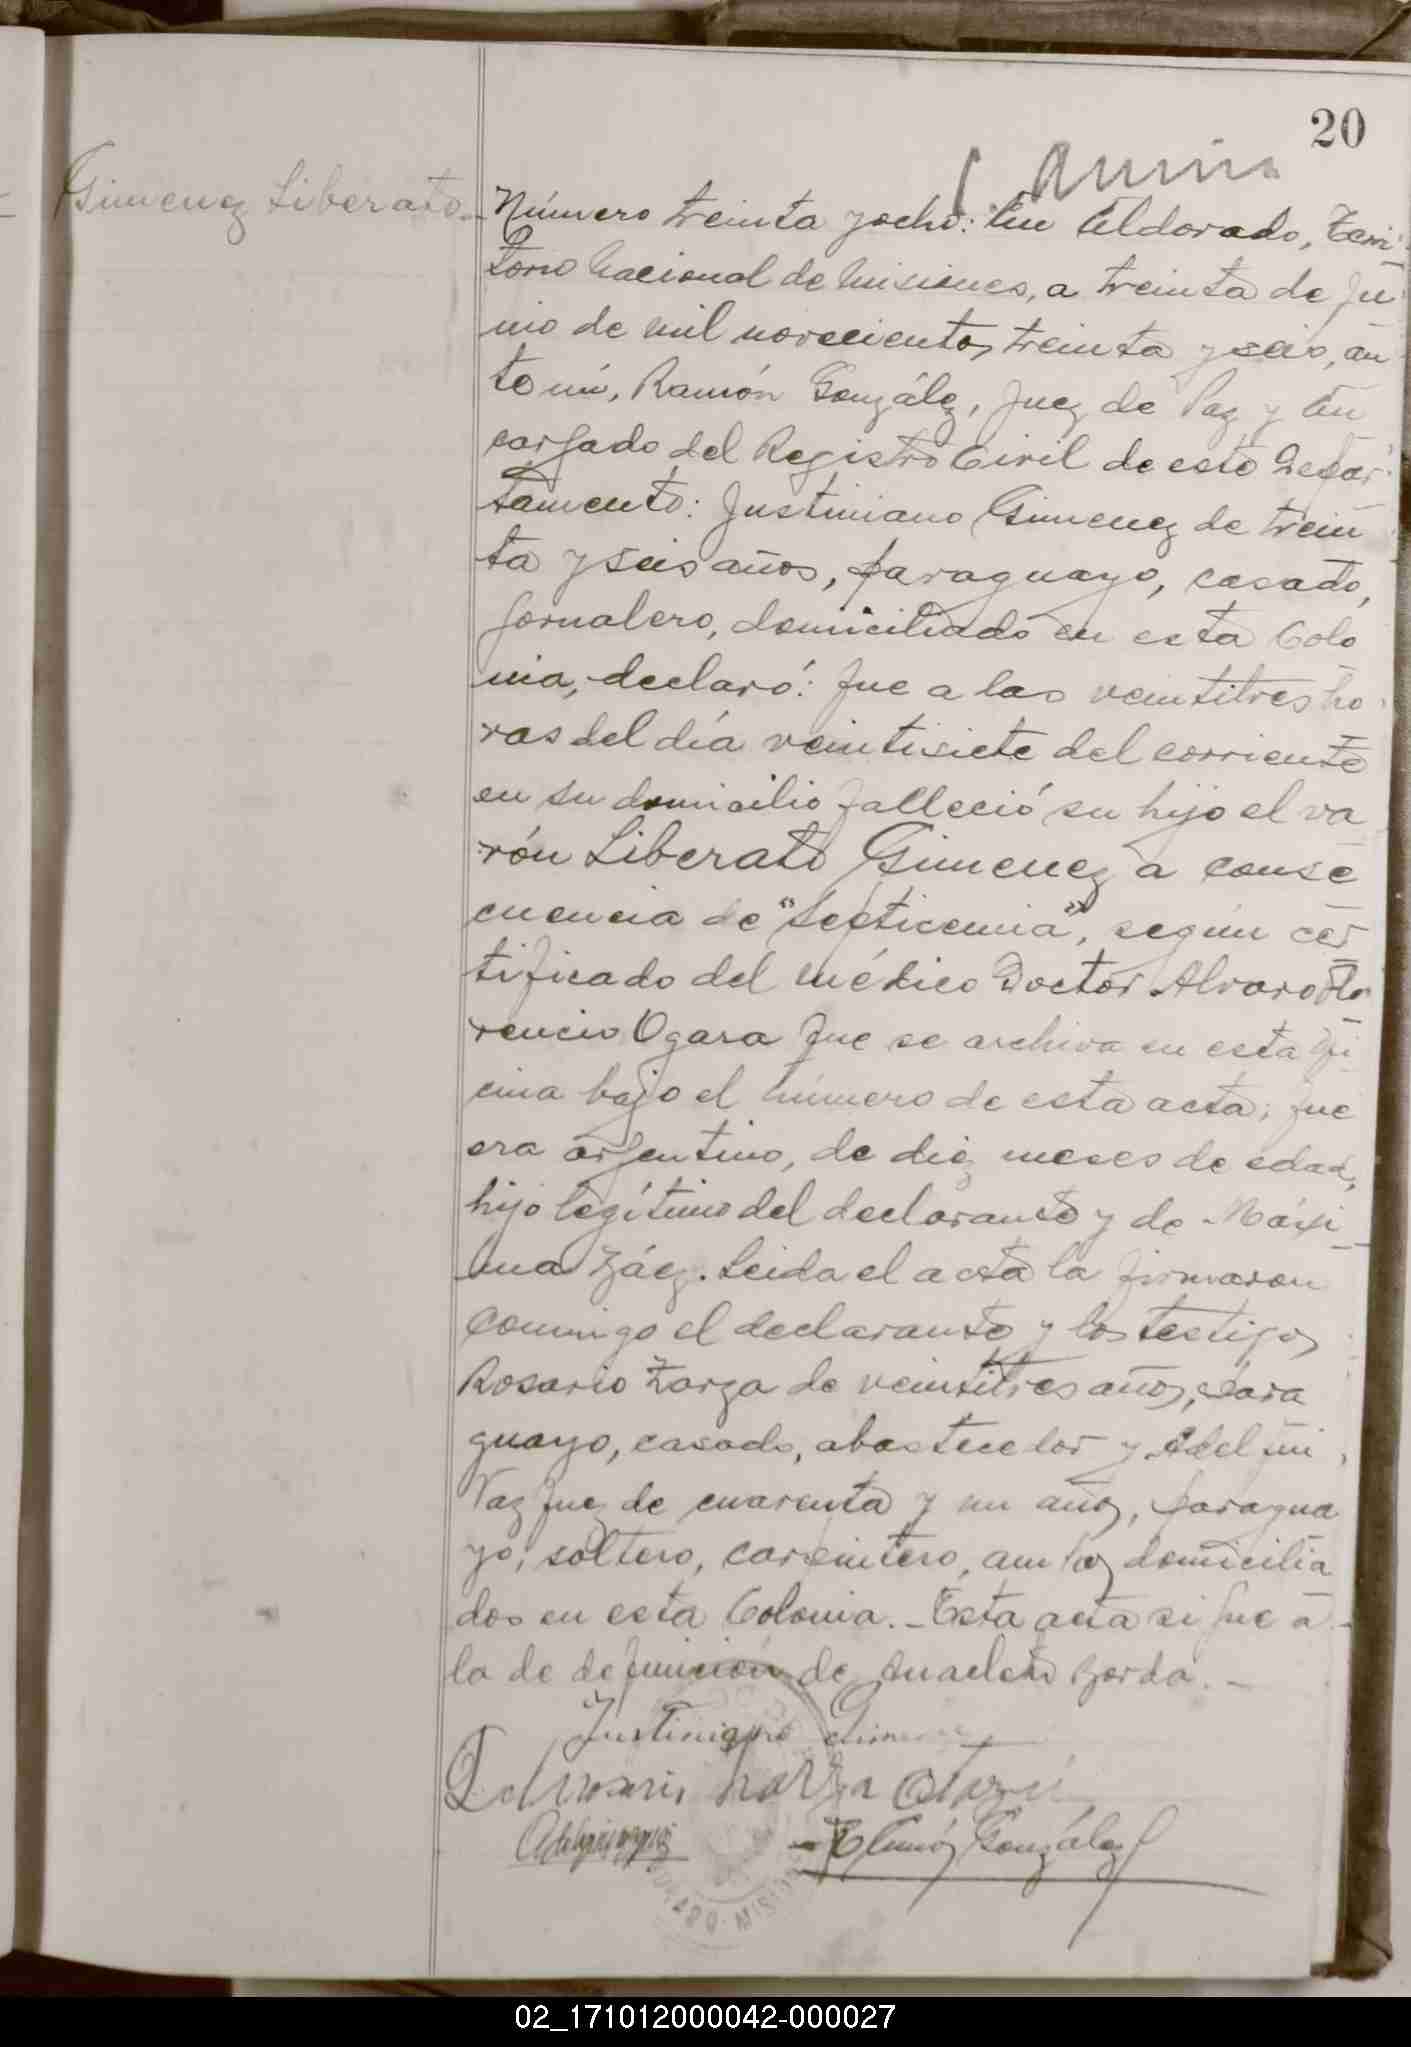 20
Gimenez Liberato
Número treinta y ocho: En Eldorado, Terri
torio Nacional de Misiones, a treinta de Ju
nio de mil novecientos treinta y seis, an
te mí, Ramón González, Juez de Paz y En
cargado del Registro Civil de este Depar
tamento: Justiniano Gimenez de trein
ta y seis años, paraguayo, casado,
jornalero, domiciliado en esta Colo
nia, declaró: que a las veintitres ho
ras del día veintisiete del corriente
en su domicilio falleció su hijo el va
rón Liberato Gimenez a conse
cuencia de "Septicemia", según cer
tificado del médico Doctor Alvaro Flo
rencio Ogara que se archiva en esta Ofi
cina bajo el número de esta acta; que
era argentino, de diez meses de edad,
hijo legítimo del declarante y de Máxi
ma Záez. Leida el acta la firmaron
conmigo el declarante y los testigos
Rosario Zarza de veintitres años, para
guayo, casado, abastecedor y
de cuarenta y un años, paragua
yo, soltero, carpintero, ambos domicilia
dos en esta Colonia. - Esta acta sigue a
la de defunción de Anacleto Borda. -
Justiniano Gimenez
Ramón González
02_171012000042-000027